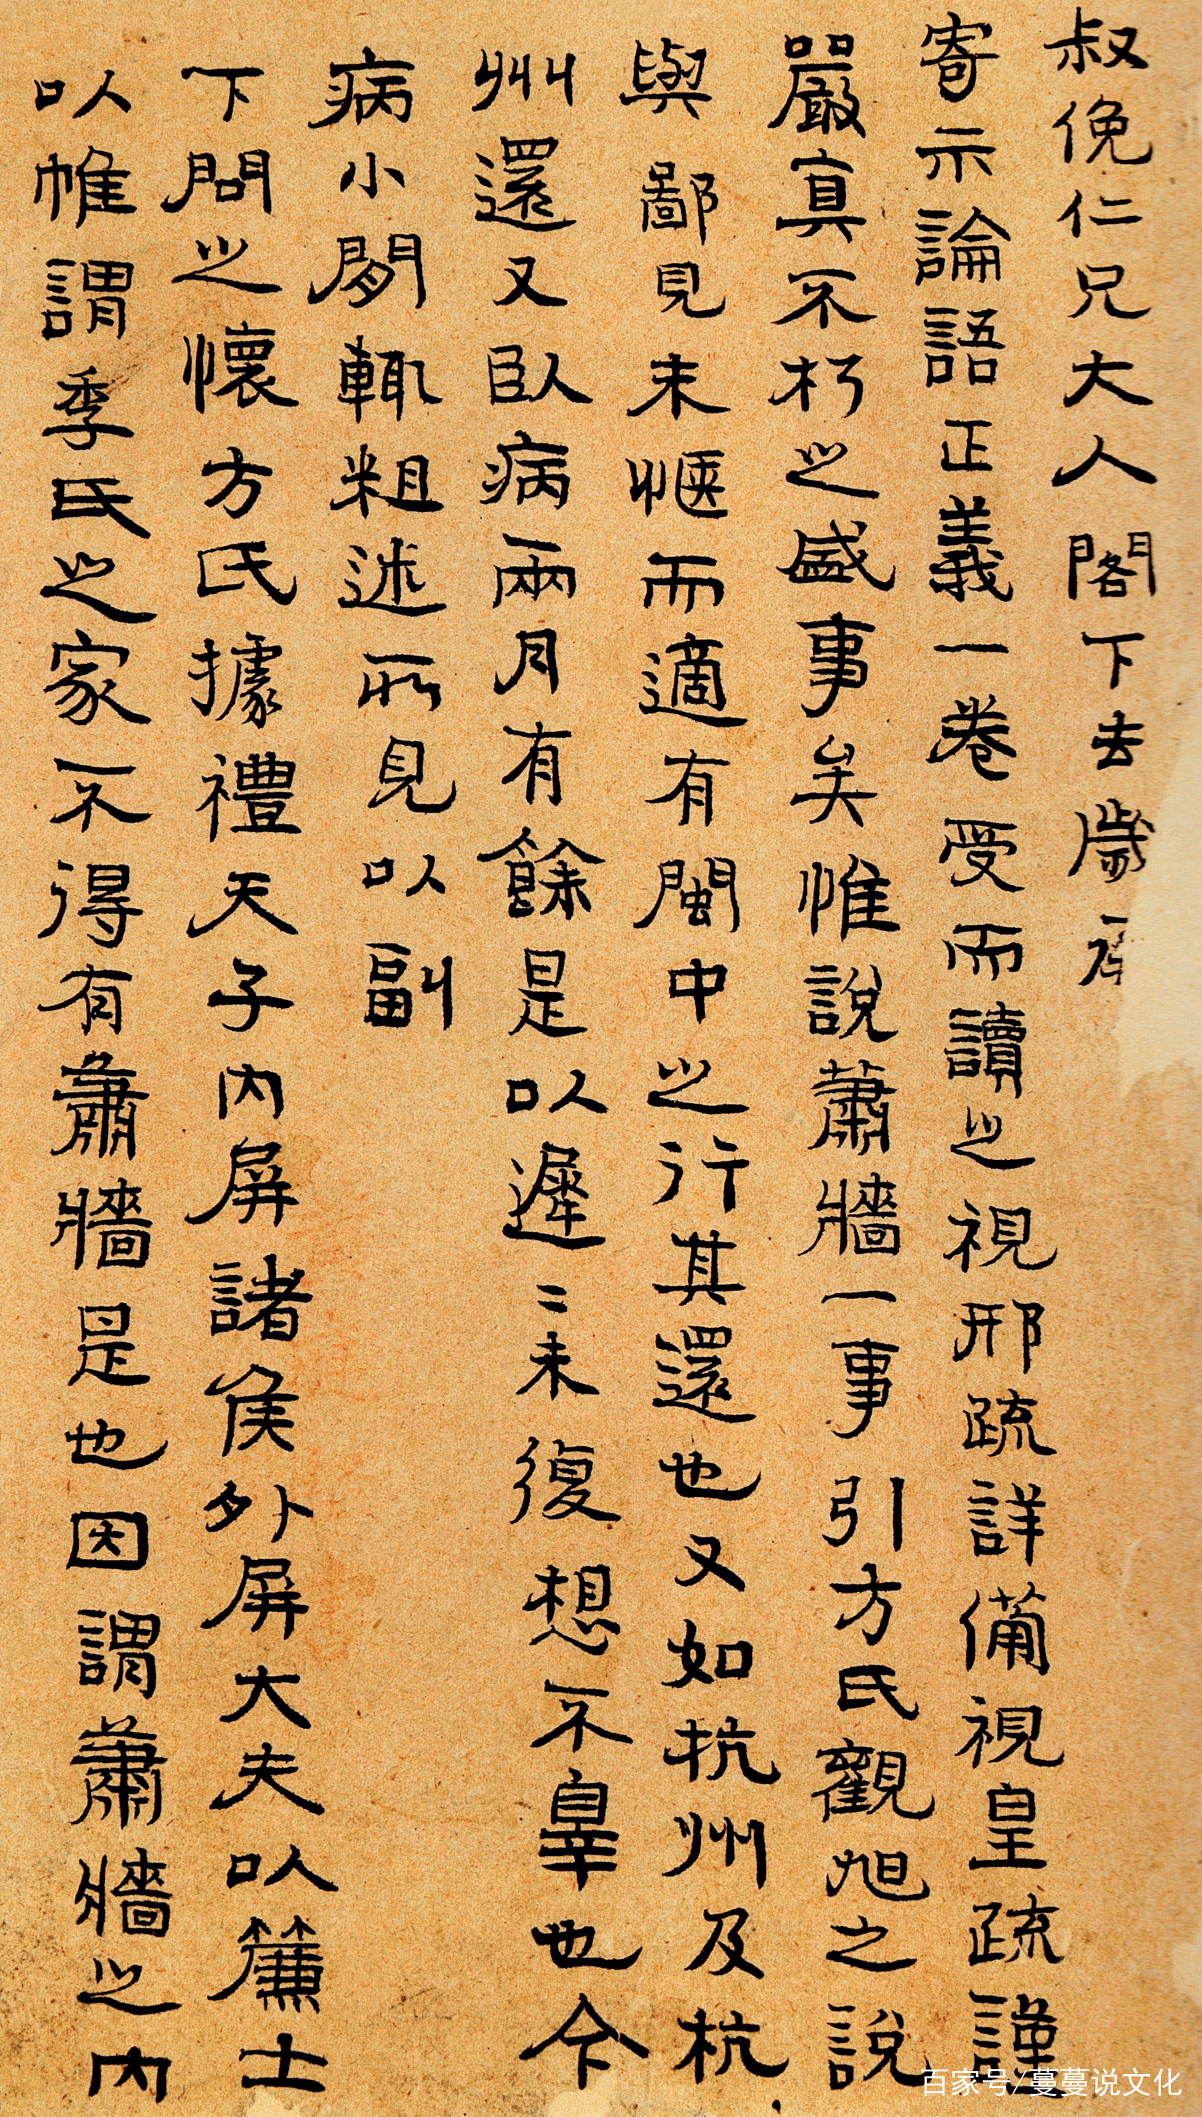 叔俛仁兄大人閣下去歲承
寄示論語正義一卷受而讀之視邢疏詳備視皇疏謹
嚴寘不朽之盛事矣惟說蕭牆一事引方氏觀旭之說
與鄙見未愜而適有閩中之行其還也又如杭州及杭
州還又臥病兩月有餘是以遲〻未復想不辠也今
病小閒輒粗述所見以副
下問之懷方氏據禮天子內屏諸矦外屏大夫以簾士
以帷謂季氏之家不得有蕭牆是也因謂蕭牆之內
百家号/蔓蔓说文化